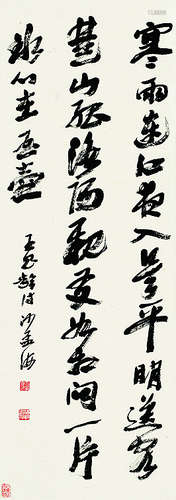 寒雨連江夜入吳平明送客
楚山孤洛陽親友如相問一片
冰心在玉壺
王昌齡詩沙孟海